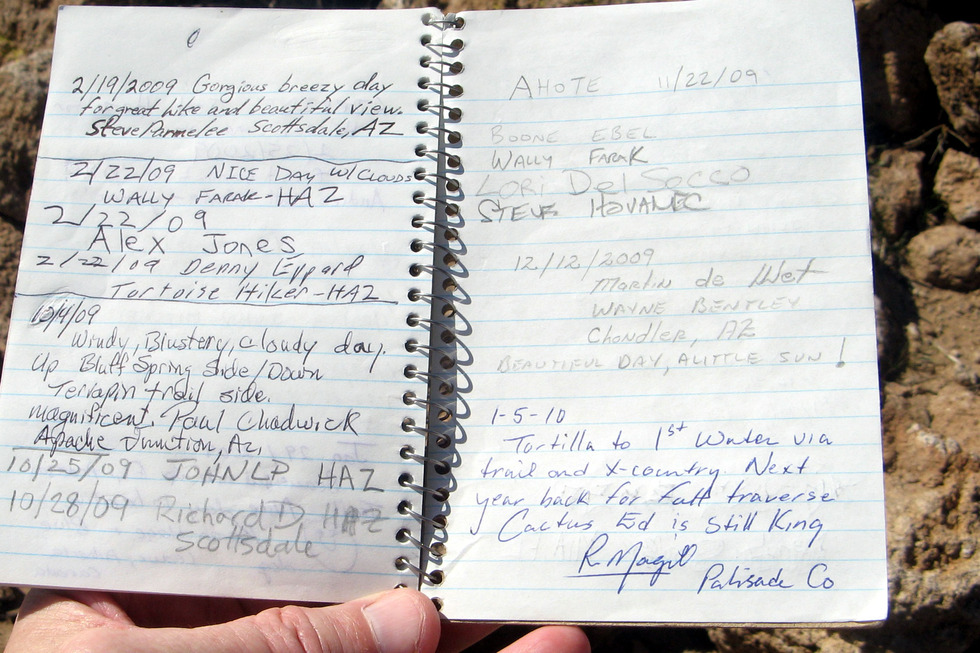 2/19/2009 Gorgious breezy day
for great hike and beautiful view.
Steve Parmelee Scottsdale, AZ
2/22/09 NICE DAY W/CLOUDS
WALLY FARAK-HAZ
2/22/09
Alex Jones
2/22/09 Denny Eppard
Tortoise Hiker-HAZ
Windy, Blustery, cloudy day.
Up Bluff Spring side/Down
Terrapin trail side.
magnificent. Paul Chadwick
Apache Junction, Az.
10/25/09 JOHNLP HAZ
10/28/09 Richard D. HAZ
Scottsdale
AHOTE 11/22/09
BOONE EBEL
WALLY FARAK
LORI Del Socco
STEVE HOVANEC
12/12/2009
Martin de Wet
WAYNE BENTLEY
Chandler, AZ
BEAUTIFUL DAY, A LITTLE SUN!
1-5-10
Tortilla to 1st Water via
trail and X-country. Next
year back for full traverse
Cactus Ed is still King
R Magill
Palisade Co